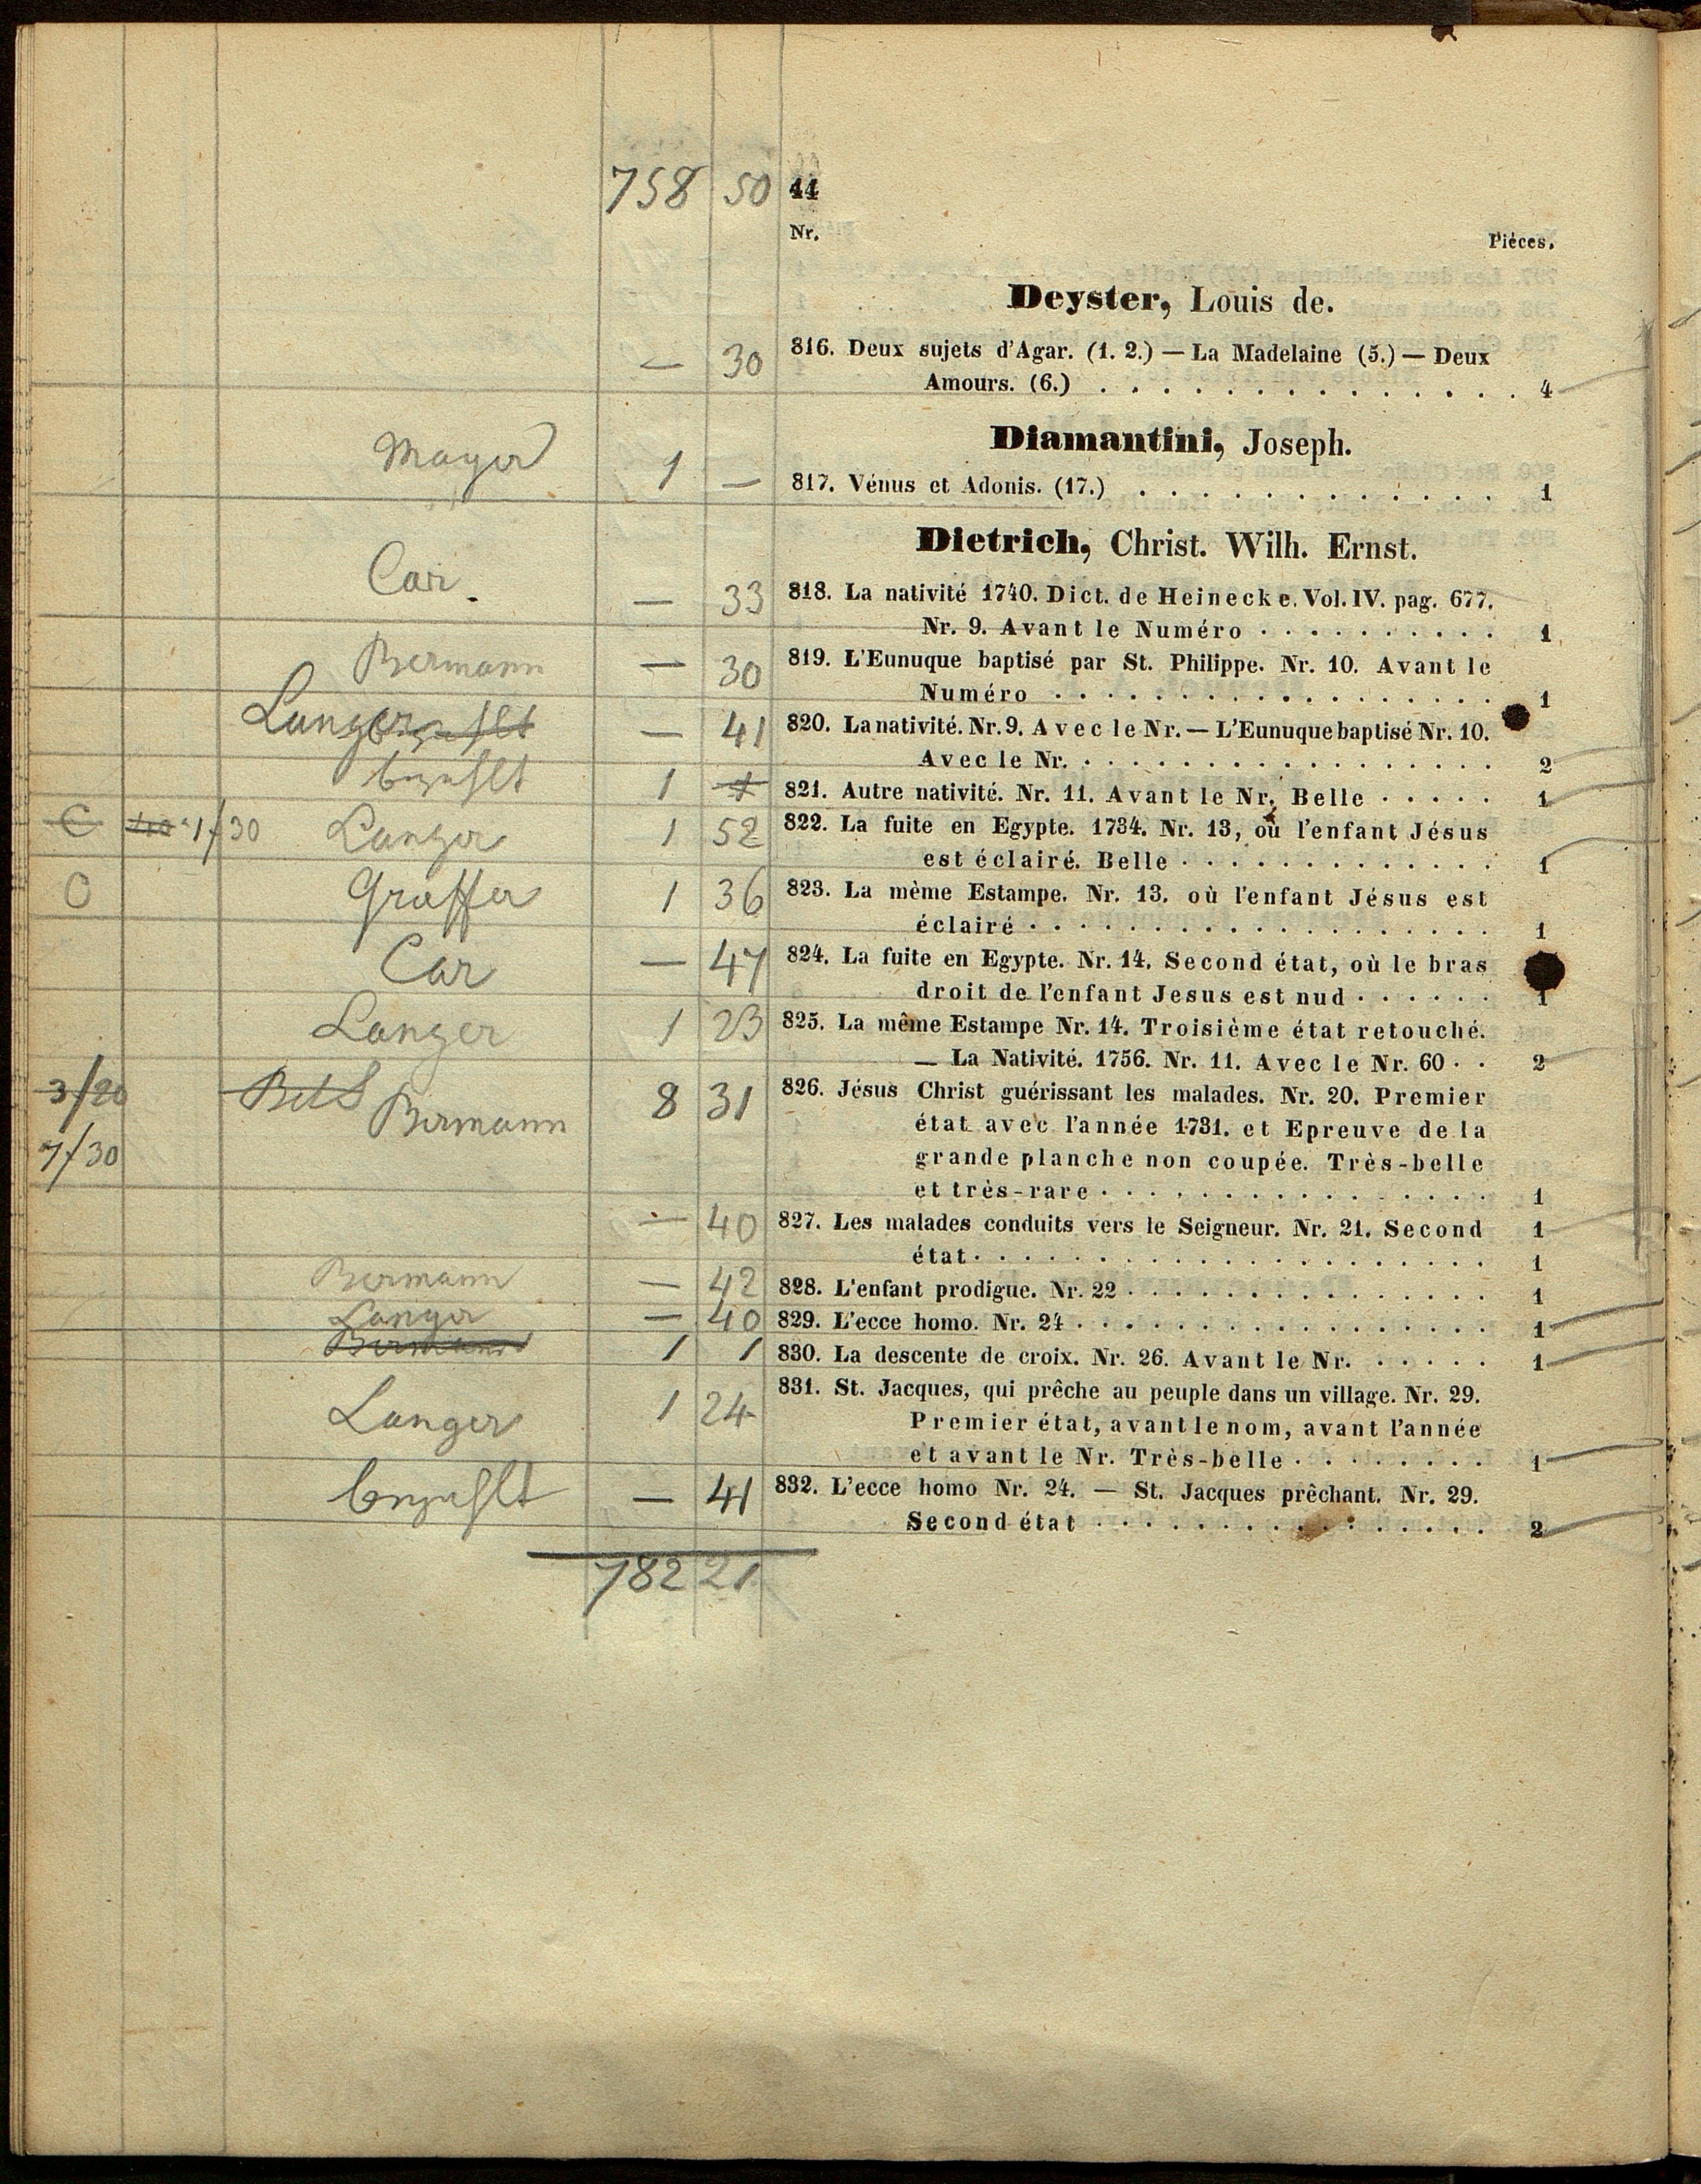 758 50 44
Nr. Piéces.
Deyster, Louis de.
— 30 816. Deux sujets d'Agar. (1. 2.) — La Madelaine (5.) — Deux
Amours. (6.) . . . . . . . . . . . . . . 4
Diamantini, Joseph.
Mayer 1 — 817. Vénus et Adonis. (17.) . . . . . . . . . . . . . 1
Dietrich, Christ. Wilh. Ernst.
Car. — 33 818. La nativité 1740. Dict. de Heinecke. Vol. IV. pag. 677.
Nr. 9. Avant le Numéro . . . . . . . . . . 1
Bermann — 30 819. L'Eunuque baptisé par St. Philippe. Nr. 10. Avant le
Numéro . . . . . . . . . . . . . . . . . . 1
Langer — 41 820. La nativité. Nr. 9. Avec le Nr. — L'Eunuque baptisé Nr. 10.
Avec le Nr. . . . . . . . . . . . . . . . . . 2
bezahlt 1 821. Autre nativité. Nr. 11. Avant le Nr. Belle . . . . . 1
1/30 Langer 1 52 822. La fuite en Egypte. 1734. Nr. 13, où l'enfant Jésus
est éclairé. Belle . . . . . . . . . . . . . 1
O Graffer 1 36 823. La mème Estampe. Nr. 13. où l'enfant Jésus est
éclairé . . . . . . . . . . . . . . . . . . . 1
Car — 47 824. La fuite en Egypte. Nr. 14. Second état, où le bras
droit de l'enfant Jesus est nud . . . . . . 1
Langer 1 23 825. La même Estampe Nr. 14. Troisième état retouché.
— La Nativité. 1756. Nr. 11. Avec le Nr. 60 . . 2
3/20 Bermann 8 31 826. Jésus Christ guérissant les malades. Nr. 20. Premier
état avec l'année 1731. et Epreuve de la
7/30 grande planche non coupée. Très-belle
et très-rare . . . . . . . . . . . . . . . . 1
— 40 827. Les malades conduits vers le Seigneur. Nr. 21. Second 1
état . . . . . . . . . . . . . . . . . . . . . 1
Bermann — 42 828. L'enfant prodigue. Nr. 22 . . . . . . . . . . . . . . . 1
Langer — 40 829. L'ecce homo. Nr. 24 . . . . . . . . . . . . . . . . . 1
Bermann 1 1 830. La descente de croix. Nr. 26. Avant le Nr. . . . . . 1
831. St. Jacques, qui prêche au peuple dans un village. Nr. 29.
Langer 1 24 Premier état, avant le nom, avant l'année
et avant le Nr. Très-belle . . . . . . . . 1
bezahlt — 41 832. L'ecce homo Nr. 24. — St. Jacques prêchant. Nr. 29.
Second état . . . . . . . . . . . . . . . . 2
782 21